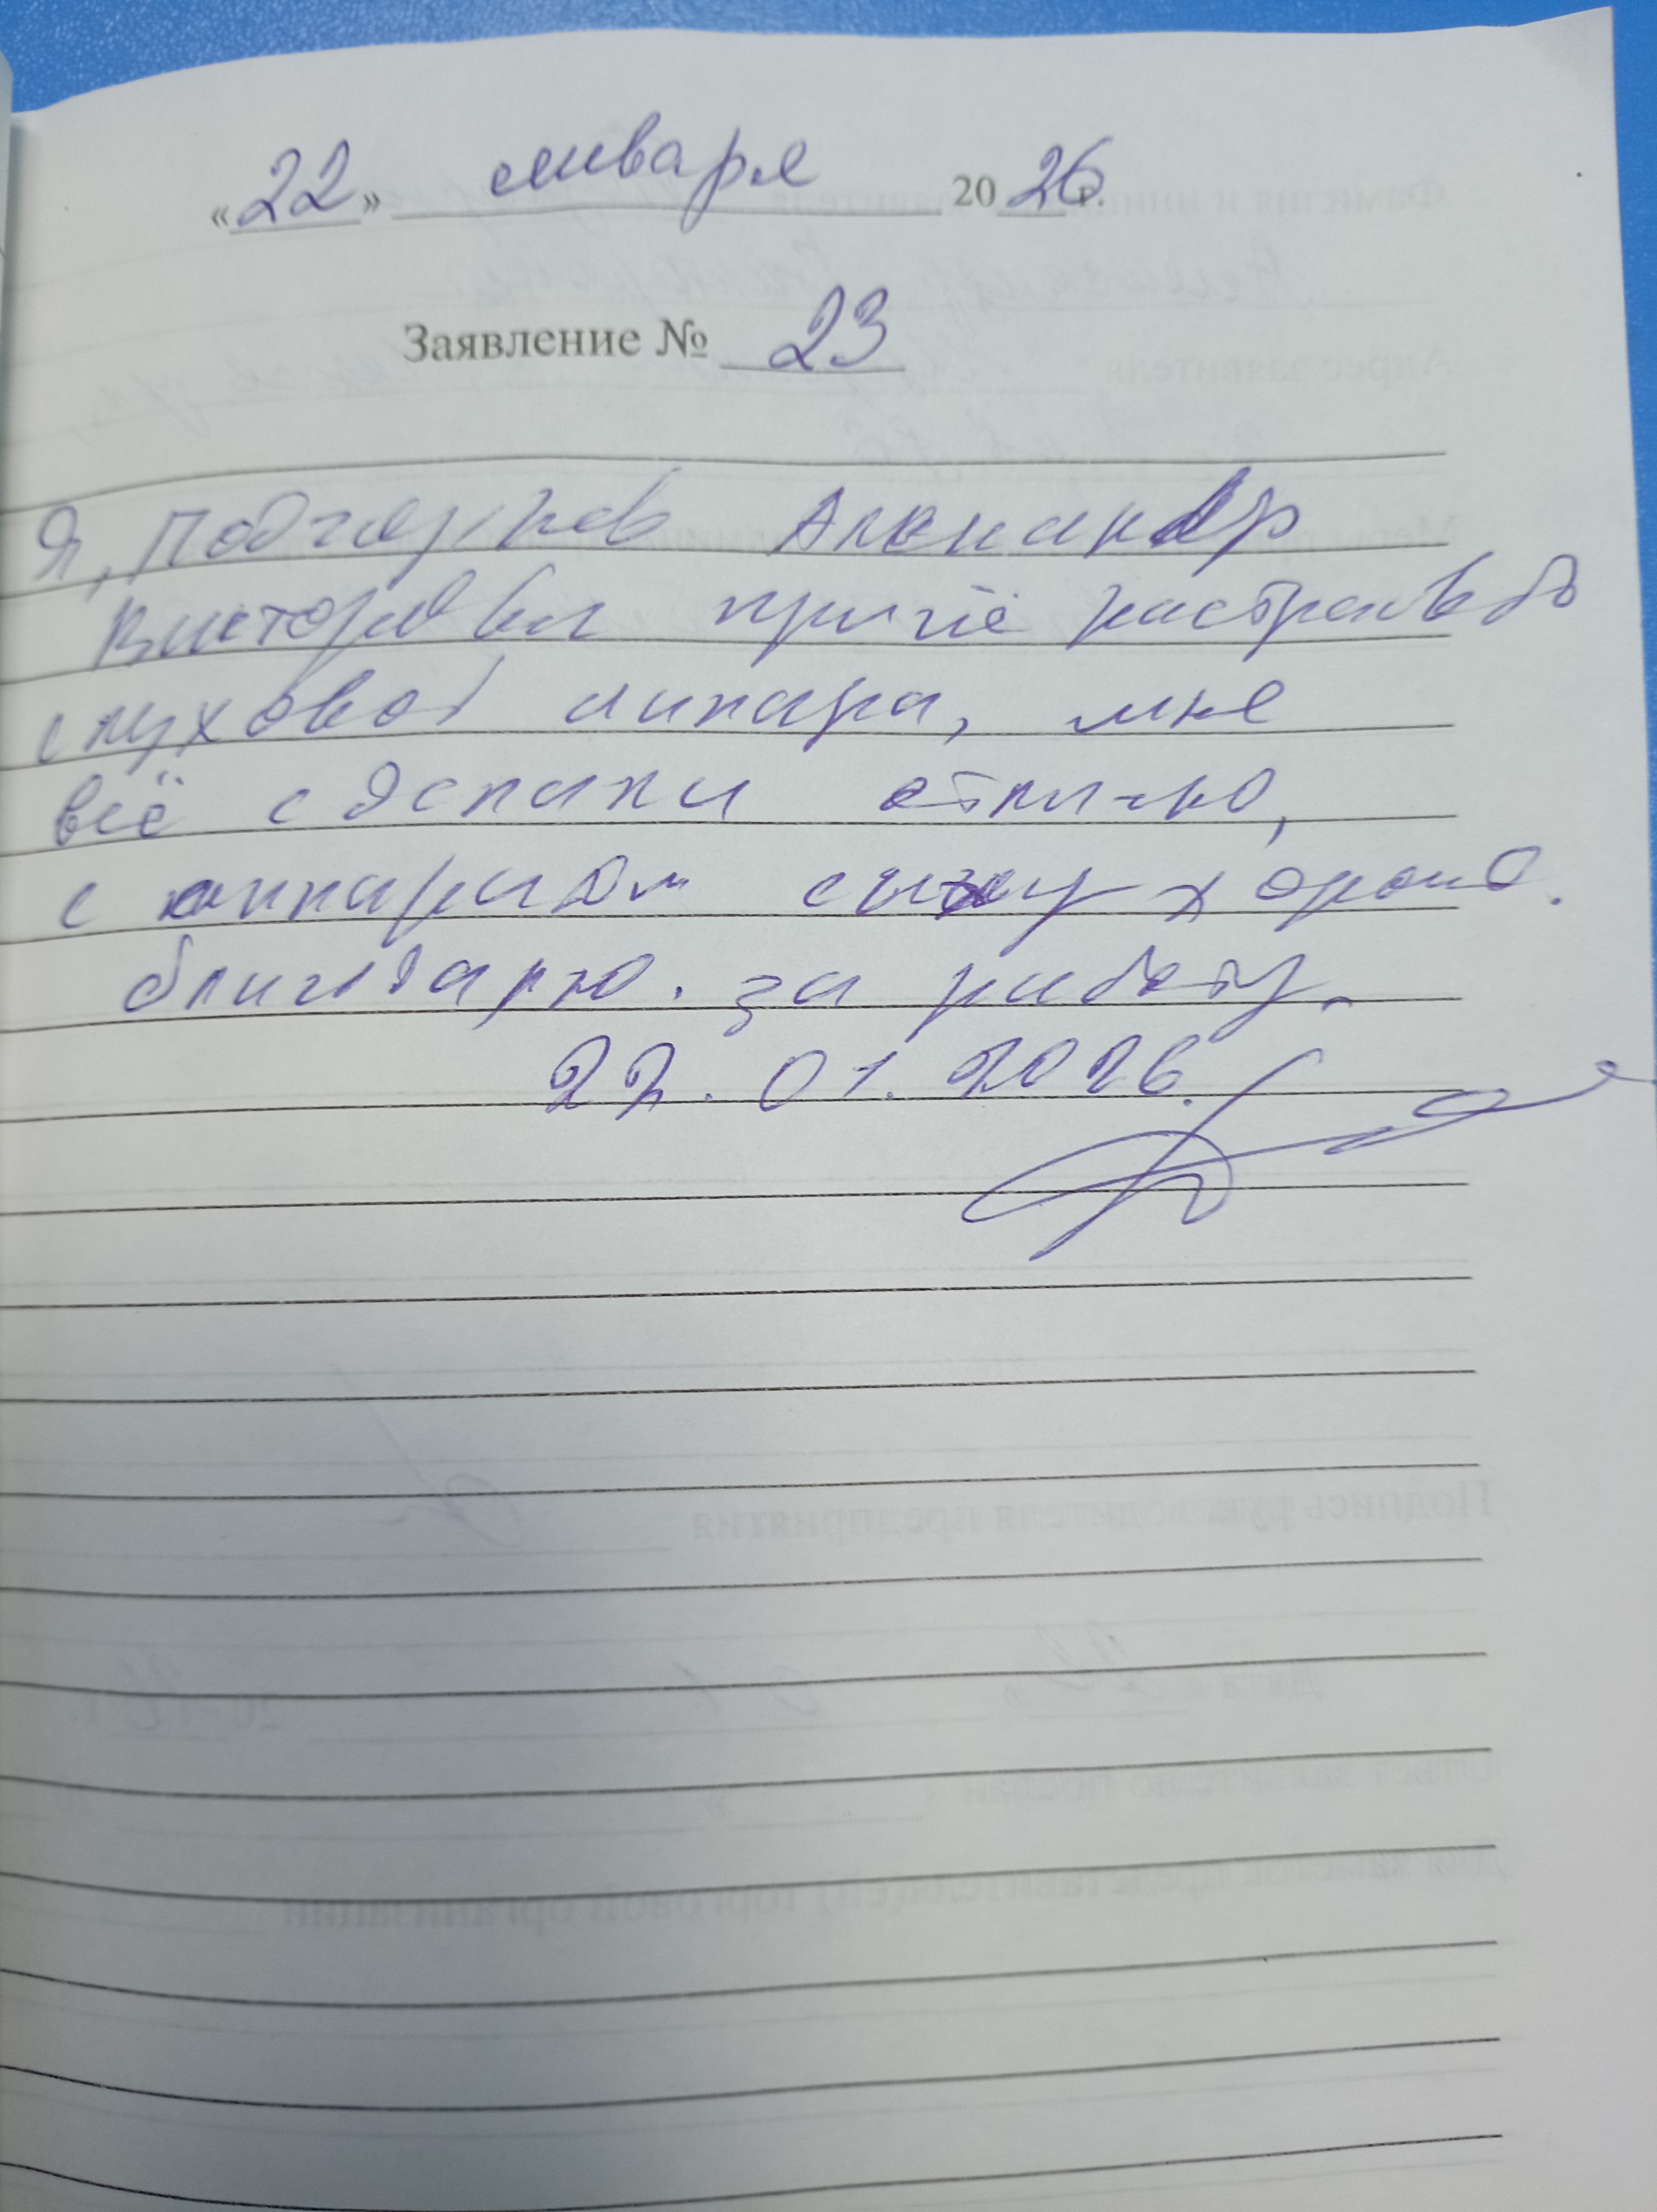 «22» января 2026 г.
Заявление № 23
Я, Александр
Викторович пришёл настроивать
слуховой аппара, мне
всё сделали отлично,
с аппаратом слышу хорошо.
благодарю. за работу.
22.01.2026.